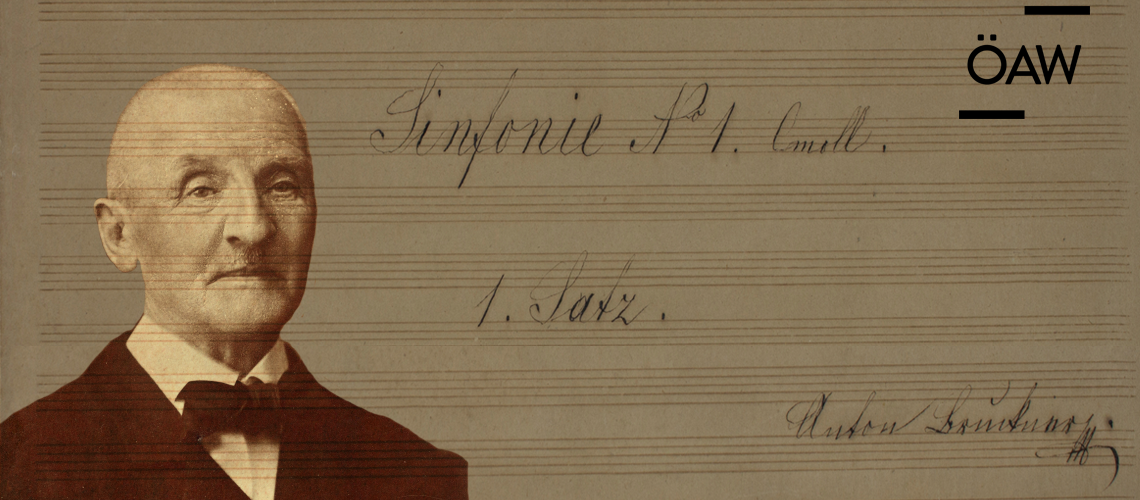 ÖAW
Sinfonie No 1. Cmoll.
1. Satz.
Anton Bruckner